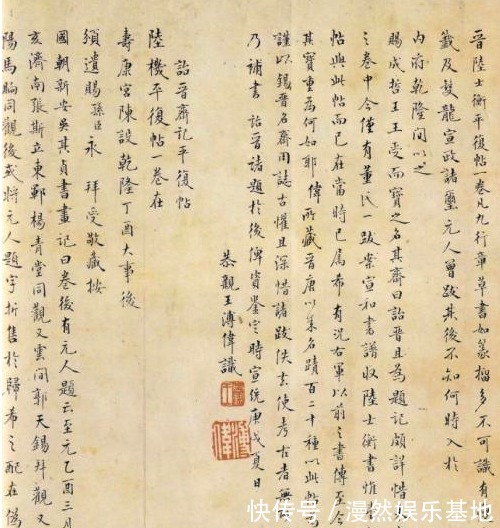 晉陸士衡平復帖一卷凡九行章草書如篆榴多不可識有
籤及雙龍宣政諸璽元人曾跋其後不知何時入於
內府乾隆間以之
賜成哲王王受而寶之名其齋曰詒晉且為題記頗詳惜
之卷中今僅有董氏一跋案宣和書譜收陸士衡書惟
帖與此帖而已在當時已屬希有況右軍以前之書傳至今
其寶重為何如耶偉所藏晉唐以來名蹟百二十種以此
謹以錫晉名齋用誌古懽且深惜諸跋佚去使考古者無
乃補書詒晉諸題於後俾資鑒定時宣統庚戌夏日
恭親王溥偉識
詒晉齋記平復帖
陸機平復帖一卷在
壽康宮陳設乾隆丁酉大事後
頒遺賜孫臣永拜受敬藏按
國朝新安吳其貞書畫記曰卷後有元人題云至元乙酉三月
亥濟南張斯立東鄆楊青堂同觀又雲間郭天錫拜觀又
陽馬昫同觀後或將元人題字折售於歸希之配在偽
快传号/漫然娱乐基地